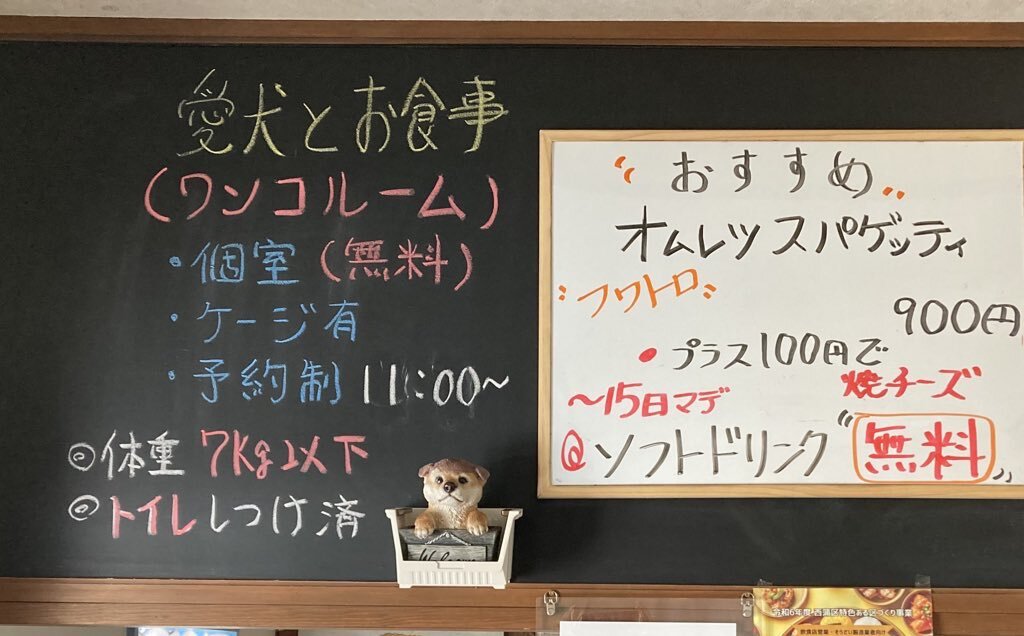 愛犬とお食事
(ワンコルーム)
・個室(無料)
・ケージ有
・予約制 11:00〜
◎体重 7Kg以下
◎トイレしつけ済
Welcome
〝おすすめ〟
オムレツスパゲッティ
〝フワトロ〟
900円
・プラス100円で
焼チーズ
〜15日マデ
◎ソフトドリンク〝無料〟
令和6年度 西蒲区特色ある区づくり事業
飲食店営業・そうざい製造業者向け